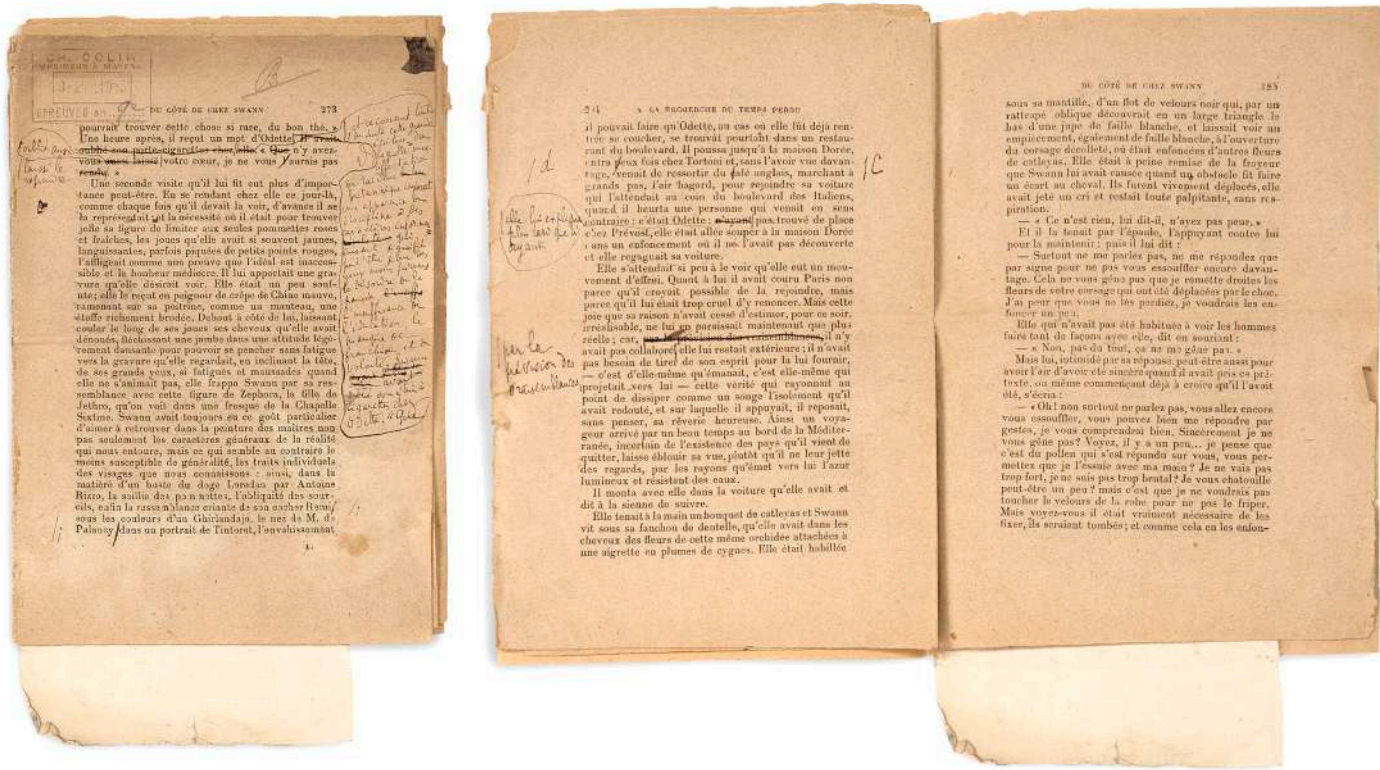 CH. COLIN
IMPRIMEUR A MAYENNE
ÉPREUVES en
DU CÔTÉ DE CHEZ SWANN 273
pourrait trouver cette chose si rare, du bon thé. »
Une heure après, il reçut un mot d'Odette. Il avait
oublié son porte-cigarettes chez elle. « Que n'y avez-
vous aussi laissé votre cœur, je ne vous l'aurais pas
rendu. »
Une seconde visite qu'il lui fit eut plus d'impor-
tance peut-être. En se rendant chez elle ce jour-là,
comme chaque fois qu'il devait la voir, d'avance il se
la représentait et la nécessité où il était pour trouver
jolie sa figure de limiter aux seules pommettes roses
et fraîches, les joues qu'elle avait si souvent jaunes,
languissantes, parfois piquées de petits points rouges,
l'affligeait comme une preuve que l'idéal est inacces-
sible et le bonheur médiocre. Il lui apportait une gra-
vure qu'elle désirait voir. Elle était un peu souf-
rante; elle le reçut en peignoir de crêpe de Chine mauve,
ramenant sur sa poitrine, comme un manteau, une
étoffe richement brodée. Debout à côté de lui, laissant
couler le long de ses joues ses cheveux qu'elle avait
dénoués, fléchissant une jambe dans une attitude légè-
rement dansante pour pouvoir se pencher sans fatigue
vers la gravure qu'elle regardait, en inclinant la tête,
de ses grands yeux, si fatigués et maussades quand
elle ne s'animait pas, elle frappa Swann par sa res-
semblance avec cette figure de Zephora, la fille de
Jethro, qu'on voit dans une fresque de la Chapelle
Sixtine. Swann avait toujours eu ce goût particulier
d'aimer à retrouver dans la peinture des maîtres non
pas seulement les caractères généraux de la réalité
qui nous entoure, mais ce qui semble au contraire le
moins susceptible de généralité, les traits individuels
des visages que nous connaissons : ainsi, dans la
matière d'un buste du doge Loredan par Antoine
Rizzo, la saillie des pommettes, l'obliquité des sour-
cils, enfin la ressemblance criante de son cocher Remi
sous les couleurs d'un Ghirlandajo, le nez de M. de
Palancy dans un portrait de Tintoret, l'envahissement
A LA RECHERCHE DU TEMPS PERDU
il pouvait faire qu'Odette, au cas où elle fût déjà ren-
trée se coucher, se trouvât pourtant dans un restau-
rant du boulevard. Il poussa jusqu'à la maison Dorée,
entra deux fois chez Tortoni et, sans l'avoir vue davan-
tage, venait de ressortir du café anglais, marchant à
grands pas, l'air hagard, pour rejoindre sa voiture
qui l'attendait au coin du boulevard des Italiens,
quand il heurta une personne qui venait en sens
contraire : c'était Odette : n'ayant pas trouvé de place
chez Prévost, elle était allée souper à la maison Dorée
dans un enfoncement où il ne l'avait pas découverte
et elle regagnait sa voiture.
elle lui expliqua
plus tard que n'
ayant
Elle s'attendait si peu à le voir qu'elle eut un mou-
vement d'effroi. Quant à lui il avait couru Paris non
parce qu'il croyait possible de la rejoindre, mais
parce qu'il lui était trop cruel d'y renoncer. Mais cette
joie que sa raison n'avait cessé d'estimer, pour ce soir,
irréalisable, ne lui en paraissait maintenant que plus
réelle ; car, il n'y
avait pas collaboré, elle lui restait extérieure ; il n'avait
pas besoin de tirer de son esprit pour la lui fournir,
— c'est d'elle-même qu'émanait, c'est elle-même qui
projetait vers lui — cette vérité qui rayonnait au
point de dissiper comme un songe l'isolement qu'il
avait redouté, et sur laquelle il appuyait, il reposait,
sans penser, sa rêverie heureuse. Ainsi un voya-
geur arrivé par un beau temps au bord de la Méditer-
ranée, incertain de l'existence des pays qu'il vient de
quitter, laisse éblouir sa vue, plutôt qu'il ne leur jette
des regards, par les rayons qu'émet vers lui l'azur
lumineux et résistant des eaux.
par la
prévision des
vraisemblances
Il monta avec elle dans la voiture qu'elle avait et
dit à la sienne de suivre.
Elle tenait à la main un bouquet de catleyas et Swann
vit sous sa fanchon de dentelle, qu'elle avait dans les
cheveux des fleurs de cette même orchidée attachées à
une aigrette en plumes de cygnes. Elle était habillée
DU CÔTÉ DE CHEZ SWANN 285
sous sa mantille, d'un flot de velours noir qui, par un
rattrapé oblique découvrait en un large triangle le
bas d'une jupe de faille blanche, et laissait voir un
empiècement, également de faille blanche, à l'ouverture
du corsage décolleté, où étaient enfoncées d'autres fleurs
de catleyas. Elle était à peine remise de la frayeur
que Swann lui avait causée quand un obstacle fit faire
un écart au cheval. Ils furent vivement déplacés, elle
avait jeté un cri et restait toute palpitante, sans res-
piration.
— « Ce n'est rien, lui dit-il, n'ayez pas peur. »
Et il la tenait par l'épaule, l'appuyant contre lui
pour la maintenir ; puis il lui dit :
— Surtout ne me parlez pas, ne me répondez que
par signe pour ne pas vous essouffler encore davan-
tage. Cela ne vous gêne pas que je remette droites les
fleurs de votre corsage qui ont été déplacées par le choc.
J'ai peur que vous ne les perdiez, je voudrais les en-
foncer un peu.
Elle qui n'avait pas été habituée à voir les hommes
faire tant de façons avec elle, dit en souriant :
— « Non, pas du tout, ça ne me gêne pas. »
Mais lui, intimidé par sa réponse, peut-être aussi pour
avoir l'air d'avoir été sincère quand il avait pris ce pré-
texte, ou même commençant déjà à croire qu'il l'avait
été, s'écria :
— « Oh! non surtout ne parlez pas, vous allez encore
vous essouffler, vous pouvez bien me répondre par
gestes, je vous comprendrai bien. Sincèrement je ne
vous gêne pas? Voyez, il y a un peu... je pense que
c'est du pollen qui s'est répandu sur vous, vous per-
mettez que je l'essuie avec ma main? Je ne vais pas
trop fort, je ne suis pas trop brutal? Je vous chatouille
peut-être un peu? mais c'est que je ne voudrais pas
toucher le velours de la robe pour ne pas le friper.
Mais voyez-vous il était vraiment nécessaire de les
fixer, ils seraient tombés ; et comme cela en les enfon-